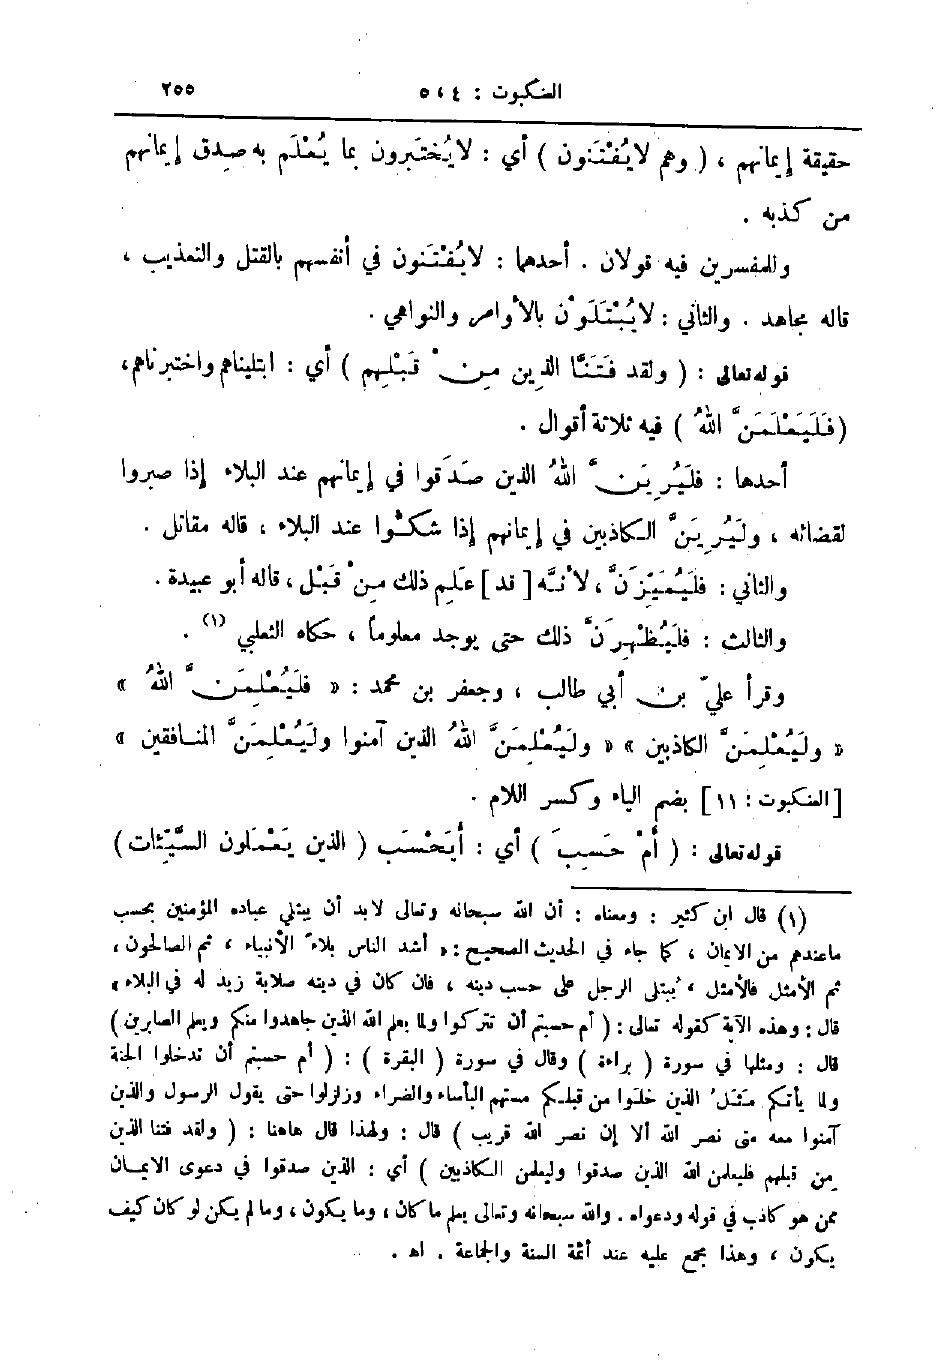 العنكبوت : ٤ ، ٥ ٢٥٥
حقيقة إيمانهم ، ( وهم لا يُفْتَنون ) أي : لا يُختَبرون بما يُعْلَم به صِدق إيمانهم
من كذبه .
وللمفسرين فيه قولان . أحدهما : لا يُفْتَنون في أنفسهم بالقتل والتعذيب ،
قاله مجاهد . والثاني : لا يُبْتَلَوْن بالأوامر والنواهي .
قوله تعالى : ( ولقد فَتَنَّا الذين مِنْ قَبْلِهم ) أي : ابتليناهم واختبرناهم ،
( فَلَيَعْلَمَنَّ اللهُ ) فيه ثلاثة أقوال .
أحدها : فلَيُرِيَنَّ اللهُ الذين صَدَقوا في إيمانهم عند البلاء إذا صبروا
لقضائه ، ولَيُرِيَنَّ الكاذبين في إيمانهم إذا شكَّوا عند البلاء ، قاله مقاتل .
والثاني : فلَيُمَيِّزَنَّ ، لأنَّه [ قد ] عَلِم ذلك مِنْ قَبْل ، قاله أبو عبيدة .
والثالث : فلَيُظْهِرَنَّ ذلك حتى يوجد معلوماً ، حكاه الثعلبي (١) .
وقرأ عليّ بن أبي طالب ، وجعفر بن محمد : « فلَيُعْلِمَنَّ اللهُ »
« ولَيُعْلِمَنَّ الكاذبين » « ولَيُعْلِمَنَّ اللهُ الذين آمنوا ولَيُعْلِمَنَّ المنافقين »
[العنكبوت : ١١] بضم الياء وكسر اللام .
قوله تعالى : ( أَمْ حَسِبَ ) أي : أَيَحْسَب ( الذين يَعْمَلون السَّيِّئات )
(١) قال ابن كثير : ومعناه : أن الله سبحانه وتعالى لابد أن يبتلي عباده المؤمنين بحسب
ماعندهم من الايمان ، كما جاء في الحديث الصحيح : « أشد الناس بلاءً الأنبياء ، ثم الصالحون ،
ثم الأمثل فالأمثل ، يُبتلى الرجل على حسب دينه ، فان كان في دينه صلابة زيد له في البلاء »
قال : وهذه الآية كقوله تعالى : ( أم حسبتم أن تتركوا ولما يعلم الله الذين جاهدوا منكم ويعلم الصابرين )
قال : ومثلها في سورة ( براءة ) وقال في سورة ( البقرة ) : ( أم حسبتم أن تدخلوا الجنة
ولما يأتكم مَثَلُ الذين خلَوا من قبلكم مستهم البأساء والضراء وزلزلوا حتى يقول الرسول والذين
آمنوا معه متى نصر الله ألا إن نصر الله قريب ) قال : ولهذا قال هاهنا : ( ولقد فتنا الذين
من قبلهم فليعلمن الله الذين صدقوا وليعلمن الكاذبين ) أي : الذين صدقوا في دعوى الايمان
ممن هو كاذب في قوله ودعواه . والله سبحانه وتعالى يعلم ما كان ، وما يكون ، وما لم يكن لو كان كيف
يكون ، وهذا مجمع عليه عند أئمة السنة والجماعة . اهـ .